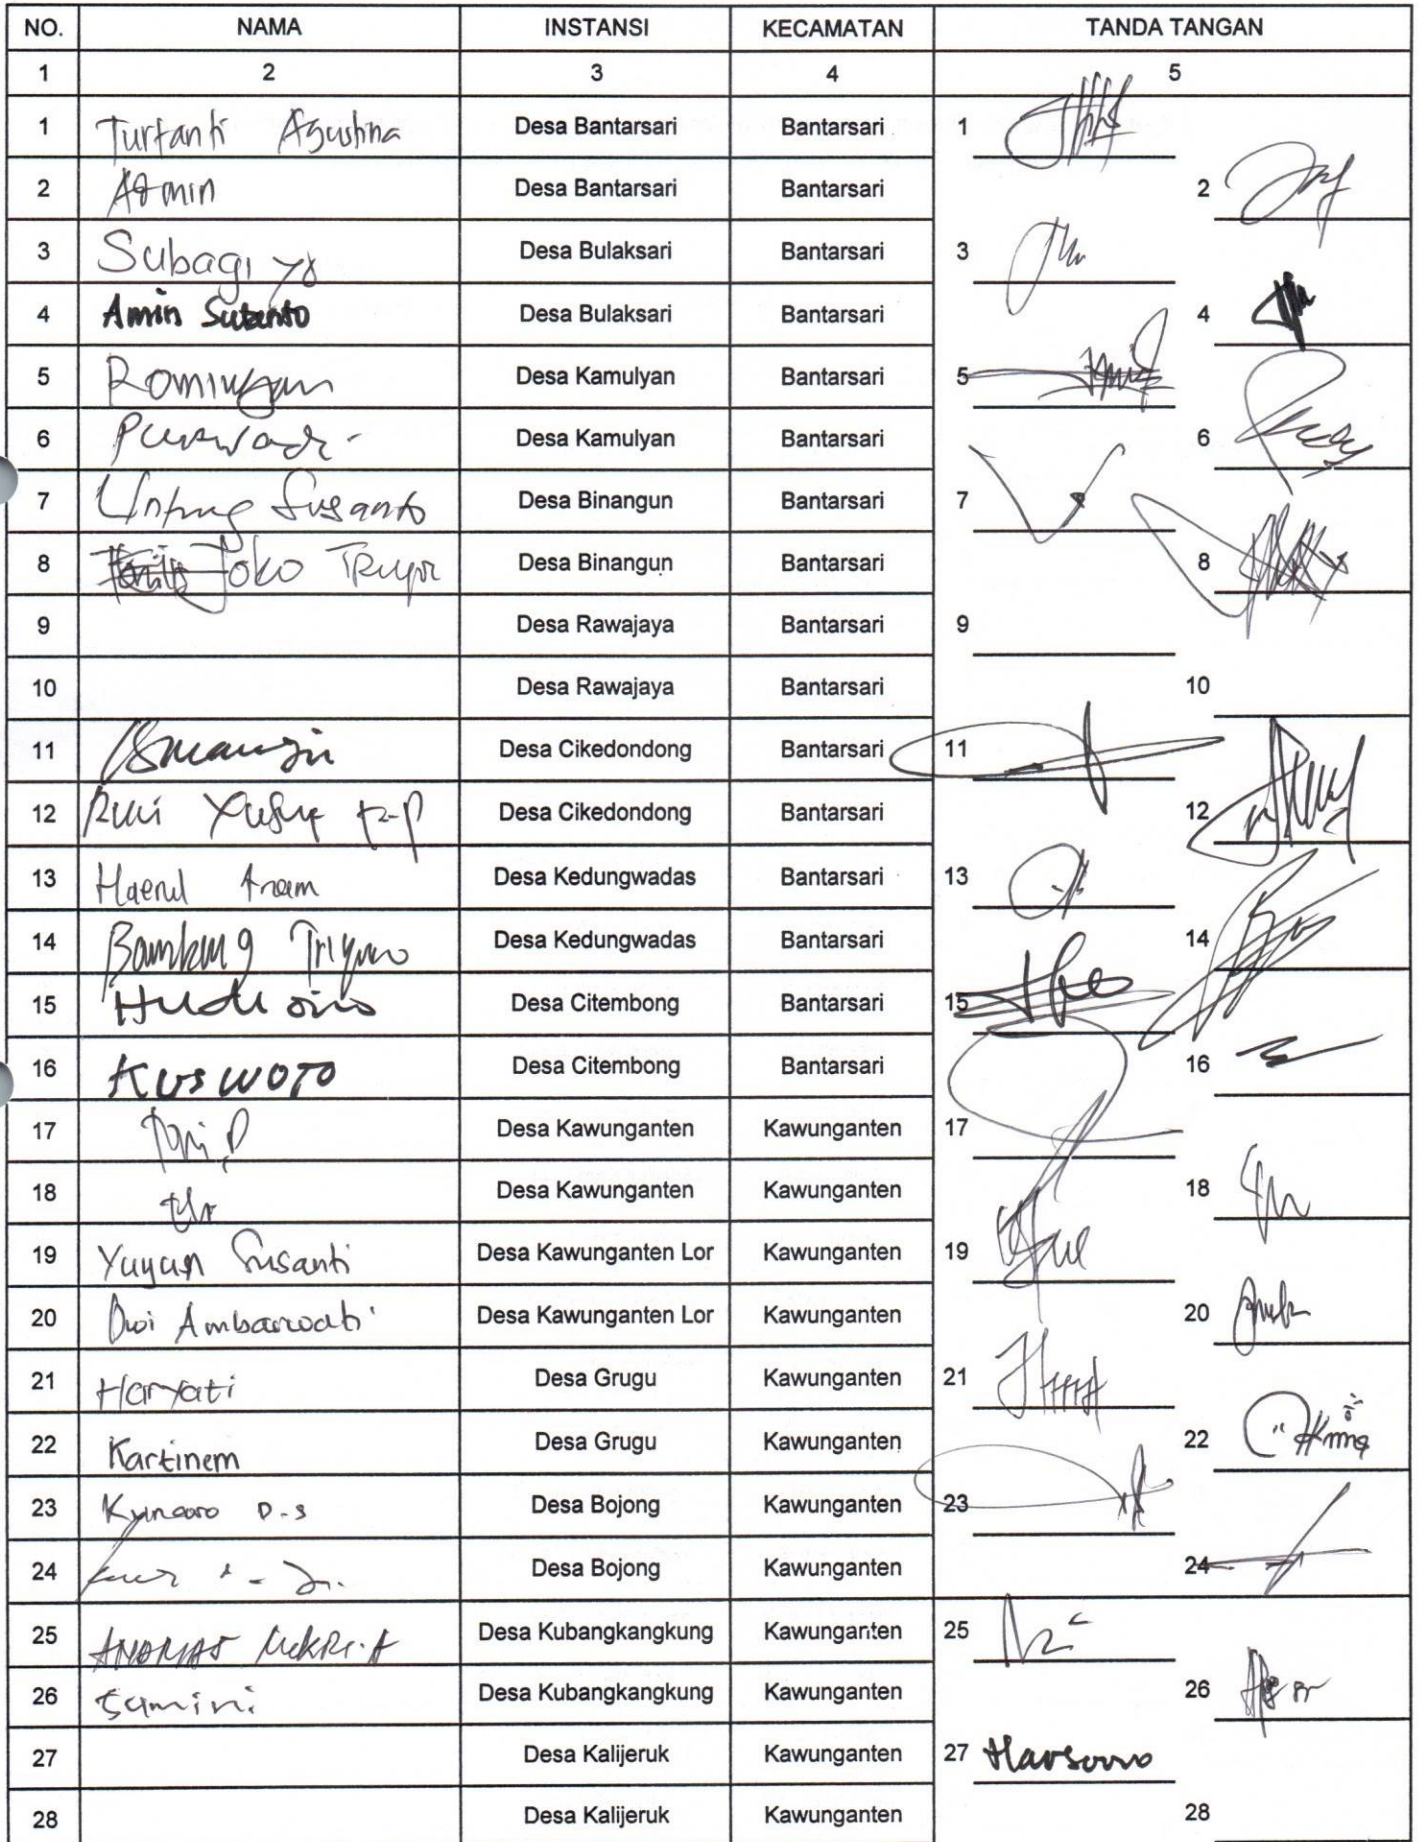 NO. NAMA INSTANSI KECAMATAN TANDA TANGAN
1 2 3 4 5
1 Turfanti Agustina Desa Bantarsari Bantarsari 1
2 Admin Desa Bantarsari Bantarsari 2
3 Subagiyo Desa Bulaksari Bantarsari 3
4 Amin Sutanto Desa Bulaksari Bantarsari 4
5 Desa Kamulyan Bantarsari 5
6 Purwadi Desa Kamulyan Bantarsari 6
7 Untung Susanto Desa Binangun Bantarsari 7
8 Joko Desa Binangun Bantarsari 8
9 Desa Rawajaya Bantarsari 9
10 Desa Rawajaya Bantarsari 10
11 Desa Cikedondong Bantarsari 11
12 Yusuf Desa Cikedondong Bantarsari 12
13 Haerul Anam Desa Kedungwadas Bantarsari 13
14 Bambang Triyono Desa Kedungwadas Bantarsari 14
15 Hudiono Desa Citembong Bantarsari 15
16 KUSWOTO Desa Citembong Bantarsari 16
17 Desa Kawunganten Kawunganten 17
18 Desa Kawunganten Kawunganten 18
19 Yuyun Susanti Desa Kawunganten Lor Kawunganten 19
20 Dwi Ambarwati Desa Kawunganten Lor Kawunganten 20
21 Haryati Desa Grugu Kawunganten 21
22 Kartinem Desa Grugu Kawunganten 22
23 Kuncoro D-S Desa Bojong Kawunganten 23
24 Desa Bojong Kawunganten 24
25 Desa Kubangkangkung Kawunganten 25
26 Samini Desa Kubangkangkung Kawunganten 26
27 Desa Kalijeruk Kawunganten 27 Harsono
28 Desa Kalijeruk Kawunganten 28